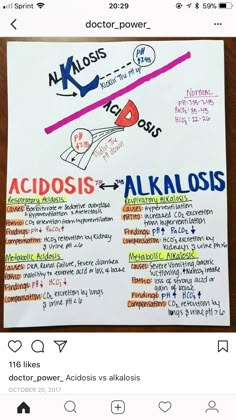 Sprint
20:29
59%
doctor_power_
ALKALOSIS
pH
>7.45
Kickin' the pH up
Normal
pH = 7.35-7.45
PaCO₂: 35-45
HCO₃: 22-26
ACIDOSIS
pH
<7.35
pH down
ACIDOSIS ↔ ALKALOSIS
Respiratory Acidosis
Causes: sedative overdose
Hypoventilation
Patho: CO₂ retention from Hypoventilation
Findings: pH↓ PaCO₂↑
Compensation: HCO₃ retention by kidney
urine pH <6
Metabolic Acidosis
Causes: DKA, Renal failure, Severe diarrhea
Patho: inability to excrete acid or loss of base
Findings: pH↓ HCO₃↓
Compensation: CO₂ excretion by lungs
urine pH <6
Respiratory Alkalosis
Causes: Hyperventilation
Patho: increased CO₂ excretion
from hyperventilation
Findings: pH↑ PaCO₂↓
Compensation: HCO₃ excretion by kidneys
urine pH
Metabolic Alkalosis
Causes: Severe Vomiting, Gastric
Suctioning, intake
Patho: loss of strong acid or
gain of base
Findings: pH↑ HCO₃↑
Compensation: CO₂ retention by
lungs urine pH >6
116 likes
doctor_power_ Acidosis vs alkalosis
OCTOBER 20, 2017